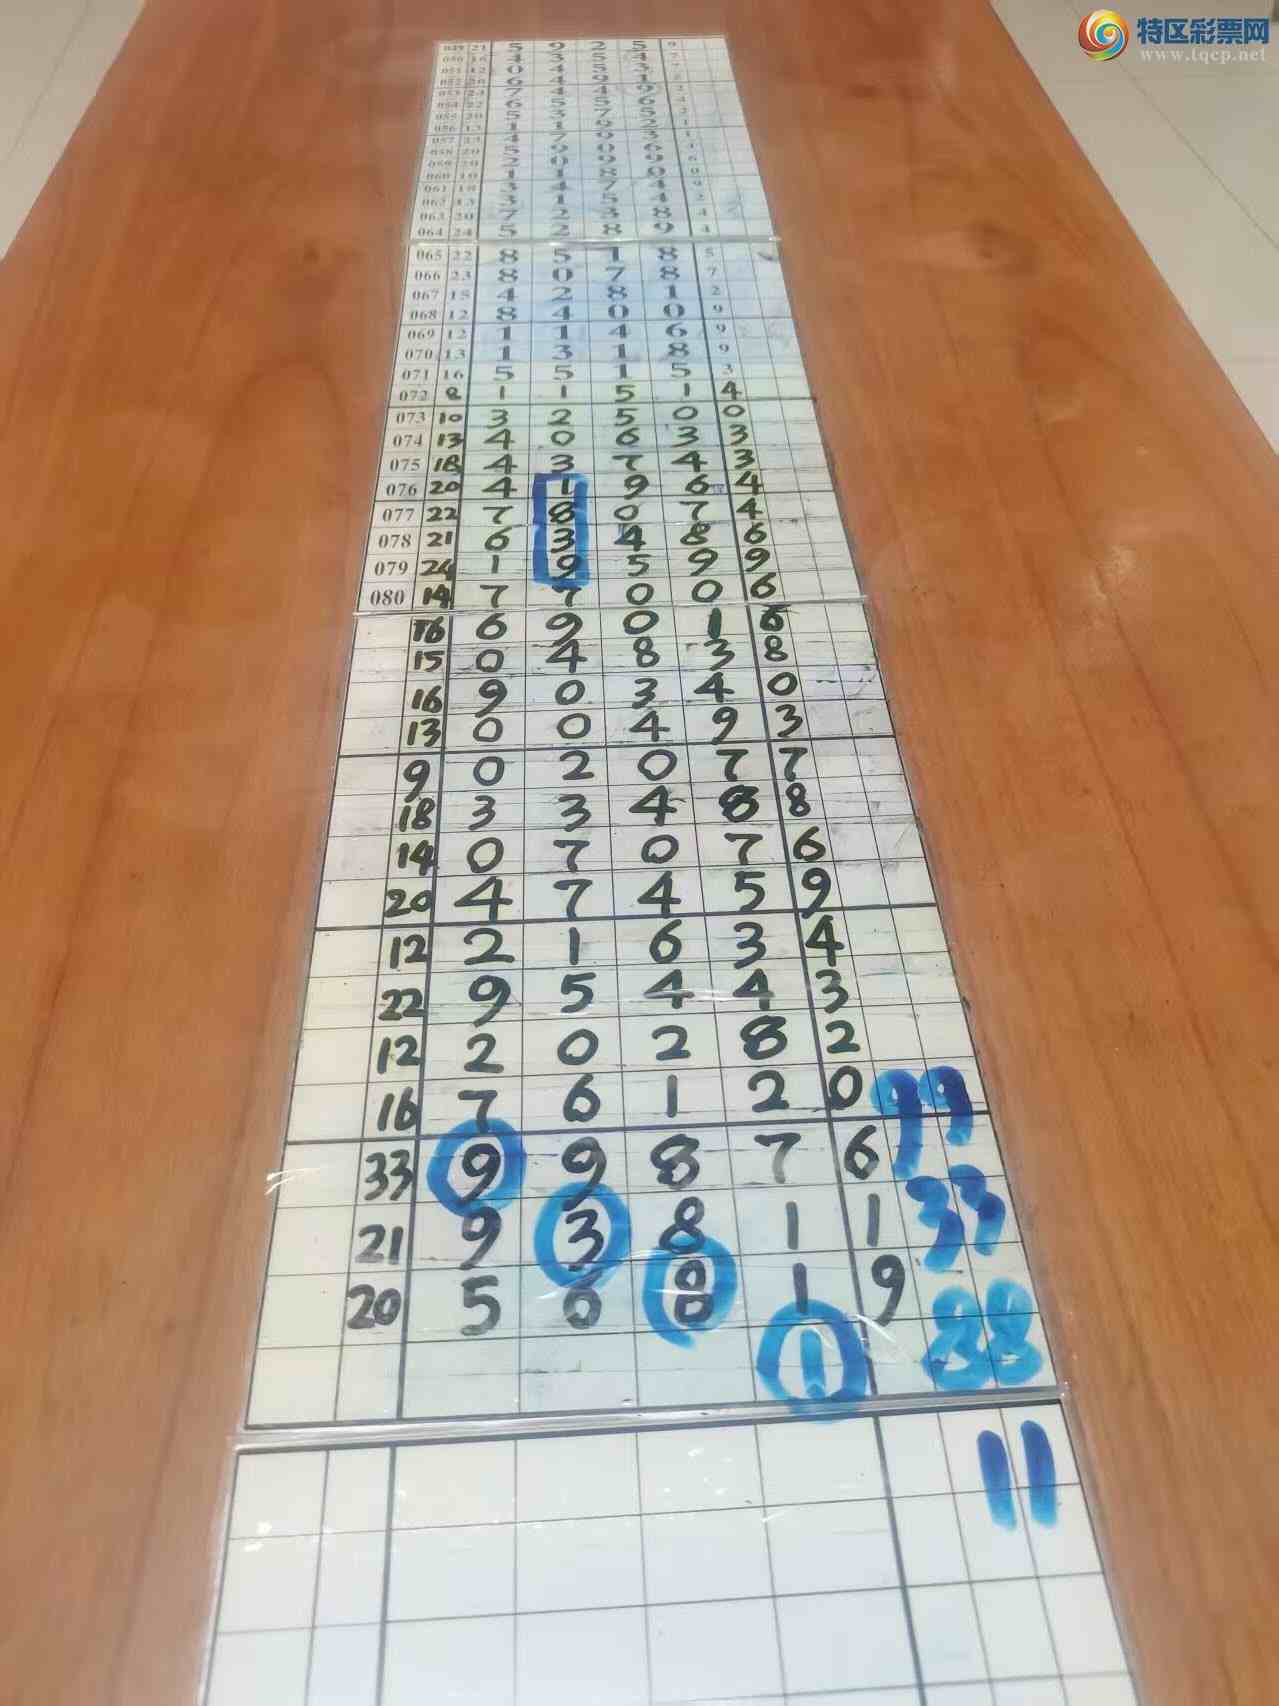 特区彩票网
www.tqcp.net
049 21 5 9 2 5 9
050 16 4 3 5 4 7
051 12 0 4 5 3
052 20 6 4 9 1
053 24 7 4 4 9 2
054 22 6 5 7 6 4
055 20 5 3 7 5 2
056 13 1 1 9 2 1
057 23 4 7 9 3 1
058 20 5 9 0 6 4
059 20 2 0 9 9 6
060 10 1 1 8 0 0
061 18 3 4 7 4 9
062 13 3 1 5 4 2
063 20 7 2 3 8 4
064 24 5 2 8 9 4
065 22 8 5 1 8 5
066 23 8 0 7 8 7
067 15 4 2 8 1 2
068 12 8 4 0 0 9
069 12 1 1 4 6 9
070 13 1 3 1 8 9
071 16 5 5 1 5 3
072 8 1 1 5 1 4
073 10 3 2 5 0 0
074 13 4 0 6 3 3
075 18 4 3 7 4 3
076 20 4 1 9 6 4
077 22 7 8 0 7 4
078 21 6 3 4 8 6
079 24 1 9 5 9 9
080 14 7 7 0 0 6
16 6 9 0 1 6
15 0 4 8 3 8
16 9 0 3 4 0
13 0 0 4 9 3
9 0 2 0 7 7
18 3 3 4 8 8
14 0 7 0 7 6
20 4 7 4 5 9
12 2 1 6 3 4
22 9 5 4 4 3
12 2 0 2 8 2
16 7 6 1 2 0 99
33 9 9 8 7 6
21 9 3 8 1 1 33
20 5 6 8 1 9 88
1
11